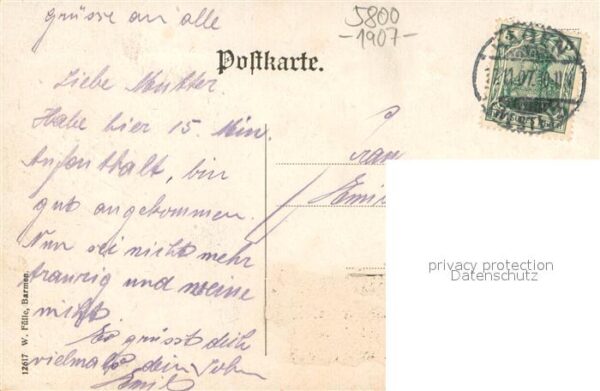 grüsse an alle
5800
-1907-
Postkarte.
Liebe Mutter
Habe hier 15. Min.
Aufenthalt, bin
gut angekommen.
Nun sei nicht mehr
traurig und weine
nicht
Es grüsst dich
vielmals dein Sohn
Emil
Frau
Emil
12617 W. Fülle, Barmen.
privacy protection
Datenschutz